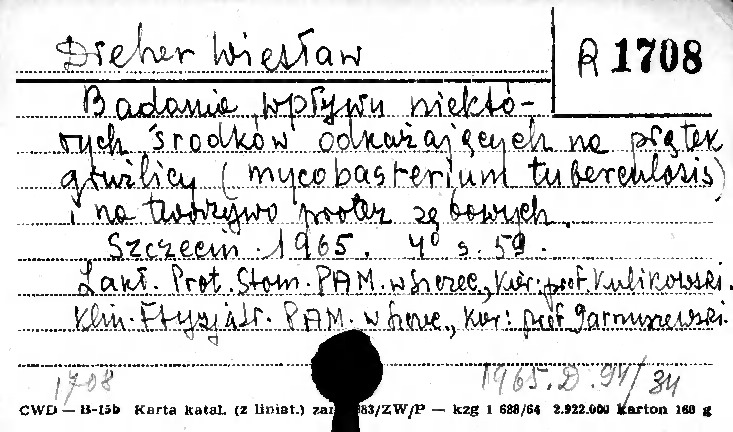 Dreher Wiesław
R 1708
Badanie wpływu niektó-
rych środków odkażających na prątek
gruźlicy (mycobasterium tuberculosis)
i na tworzywo protez zębowych.
Szczecin. 1965. 4° s. 59.
Zakł. Prot. Stom. PAM. w Szczec., Kier. prof. Kulikowski.
Klin. Ftyzjatr. PAM. w Szczec., Kier: prof. Jarnuszewski.
1708
1965.D.94/34
CWD — B-15b Karta katal. (z liniat.) zam 83/ZW/P — kzg 1 688/64 2.922.000 Karton 160 g